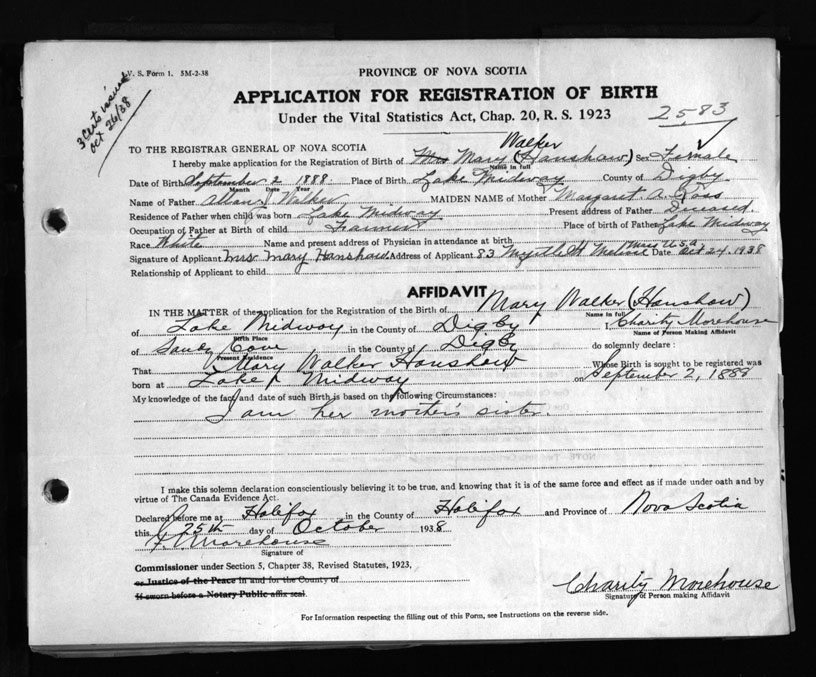 V. S. Form 1. 5M-2-38
3 Certs issued
Oct 26/38
PROVINCE OF NOVA SCOTIA
APPLICATION FOR REGISTRATION OF BIRTH
Under the Vital Statistics Act, Chap. 20, R. S. 1923
2583
TO THE REGISTRAR GENERAL OF NOVA SCOTIA
Walker
I hereby make application for the Registration of Birth of Mrs Mary (Hanshaw) Sex Female
Name in full
Date of Birth September 2 1888 Place of Birth Lake Midway County of Digby
Month Date Year
Name of Father Allan Walker MAIDEN NAME of Mother Margaret A.
Residence of Father when child was born Lake Midway Present address of Father Deceased
Occupation of Father at Birth of child Farmer Place of birth of Father Lake Midway
Race White Name and present address of Physician in attendance at birth
Mass U.S.A
Signature of Applicant Mrs Mary Hanshaw Address of Applicant 83 Myrtle St Date Oct 24, 1938
Relationship of Applicant to child
AFFIDAVIT
IN THE MATTER of the application for the Registration of the Birth of Mary Walker (Hanshaw)
Name in full
of Lake Midway in the County of Digby Charity Morehouse
Birth Place Name of Person Making Affidavit
of Sandy Cove in the County of Digby do solemnly declare:
Present Residence
That Mary Walker Hanshaw Whose Birth is sought to be registered was
born at Lake Midway on September 2, 1888
My knowledge of the fact and date of such Birth is based on the following Circumstances:
I am her mother's sister.
I make this solemn declaration conscientiously believing it to be true, and knowing that it is of the same force and effect as if made under oath and by
virtue of The Canada Evidence Act.
Declared before me at Halifax in the County of Halifax and Province of Nova Scotia
this 25th day of October 1938
Morehouse
Signature of
Commissioner under Section 5, Chapter 38, Revised Statutes, 1923,
or Justice of the Peace in and for the County of
If sworn before a Notary Public affix seal.
Charity Morehouse
Signature of Person making Affidavit
For Information respecting the filling out of this Form, see Instructions on the reverse side.